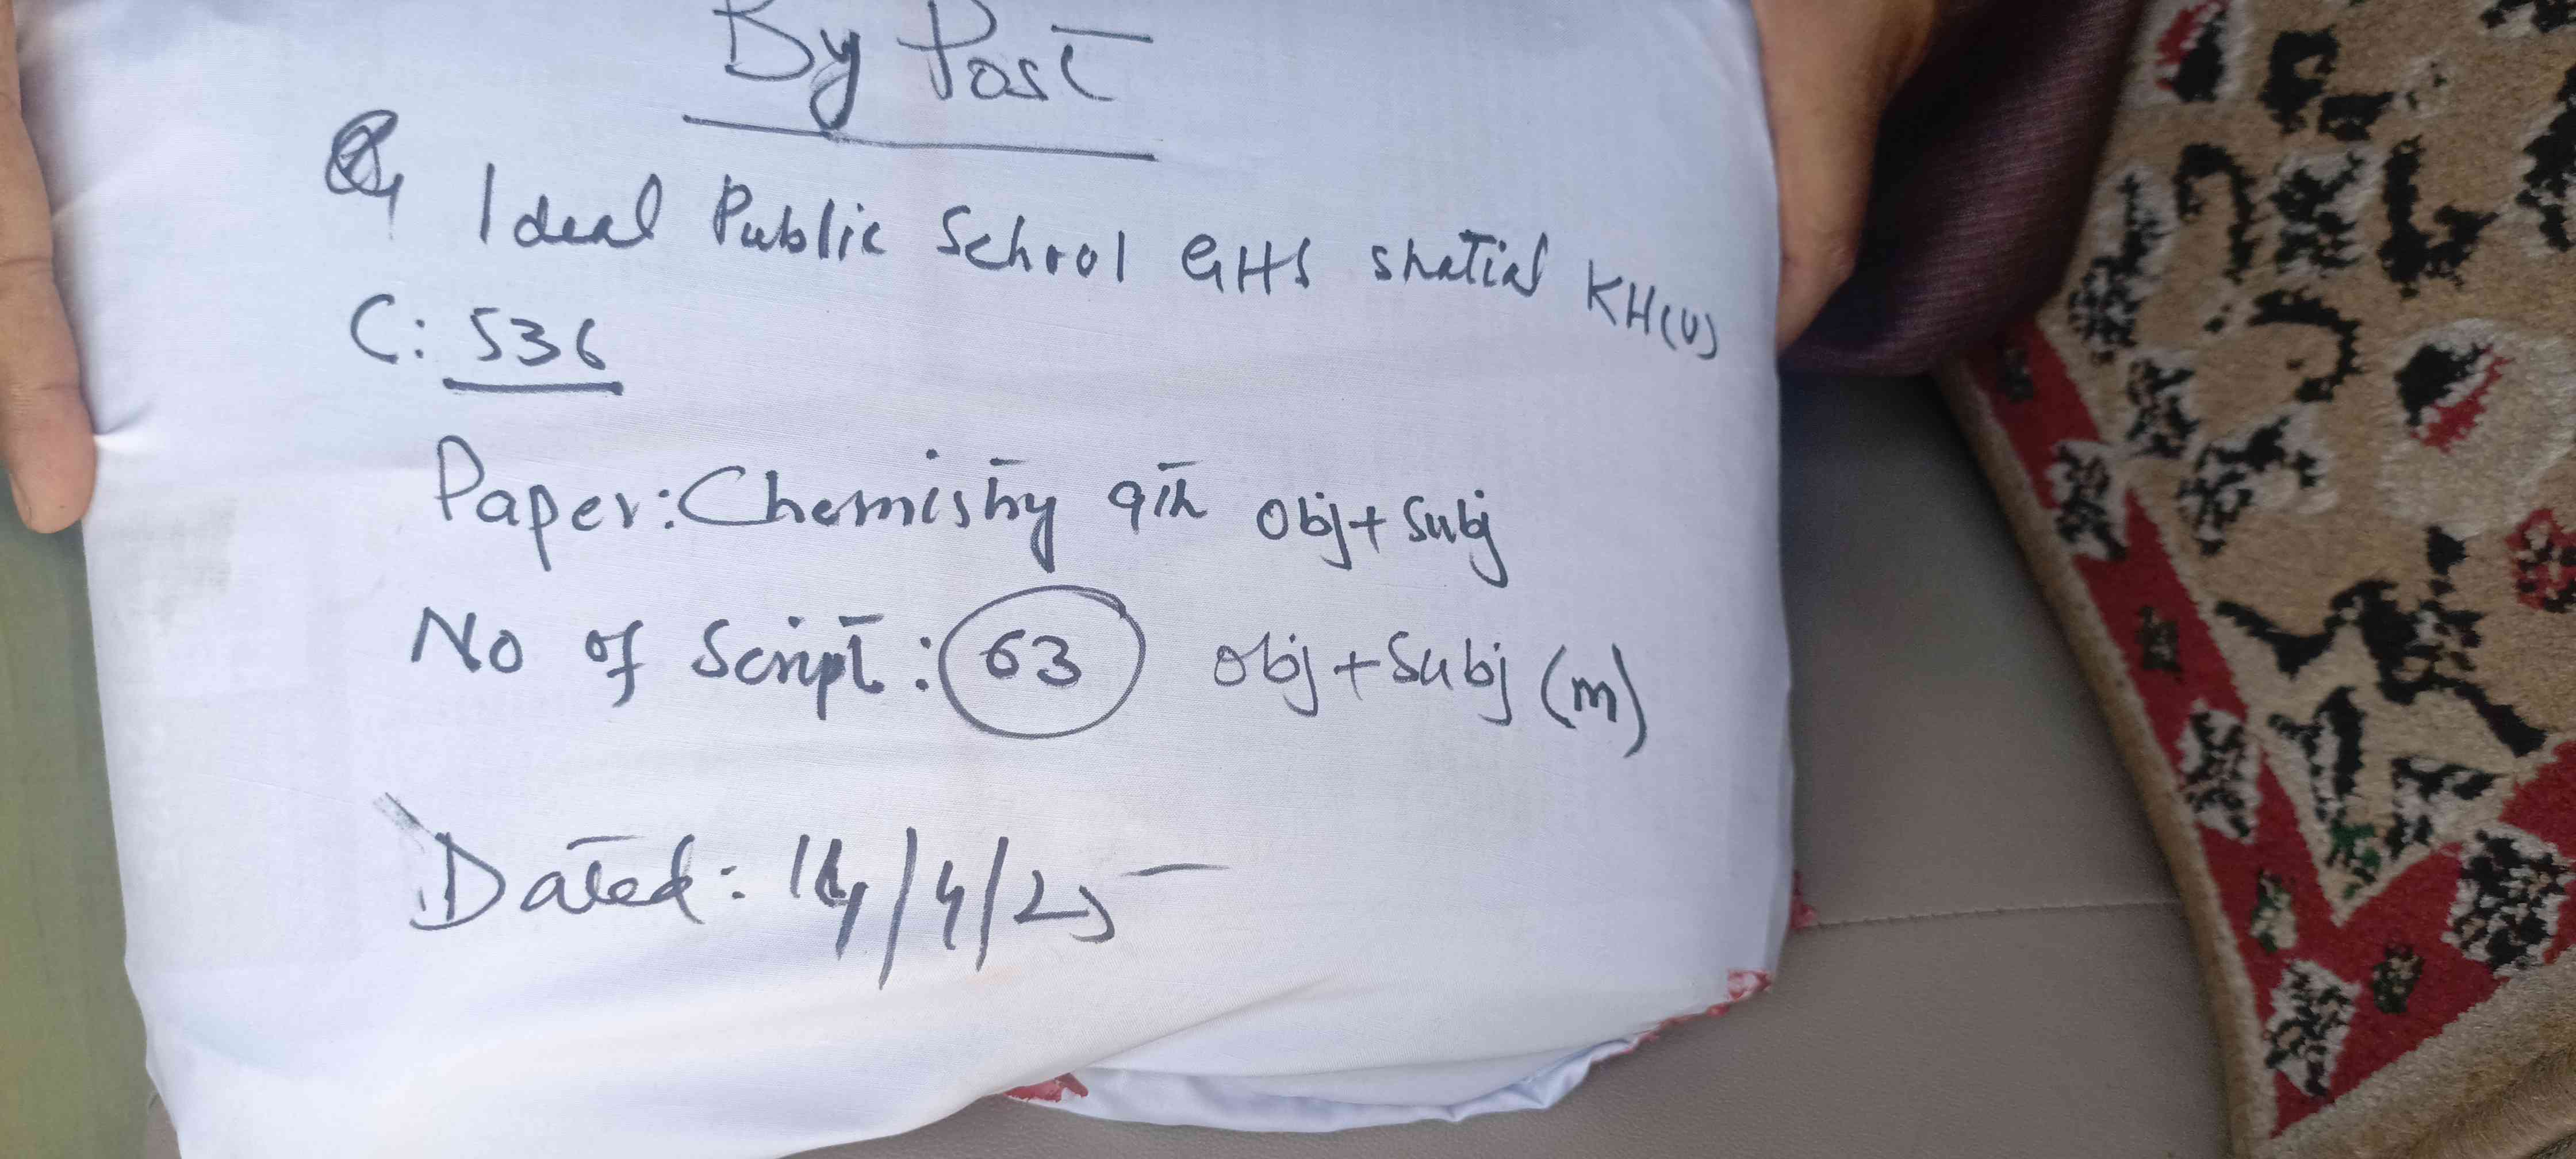 By Post
Ideal Public School GHS shatial KH(U)
C: 536
Paper: Chemistry 9th Obj+Subj
No of Script: 63 Obj+Subj (m)
Dated: 14/4/25